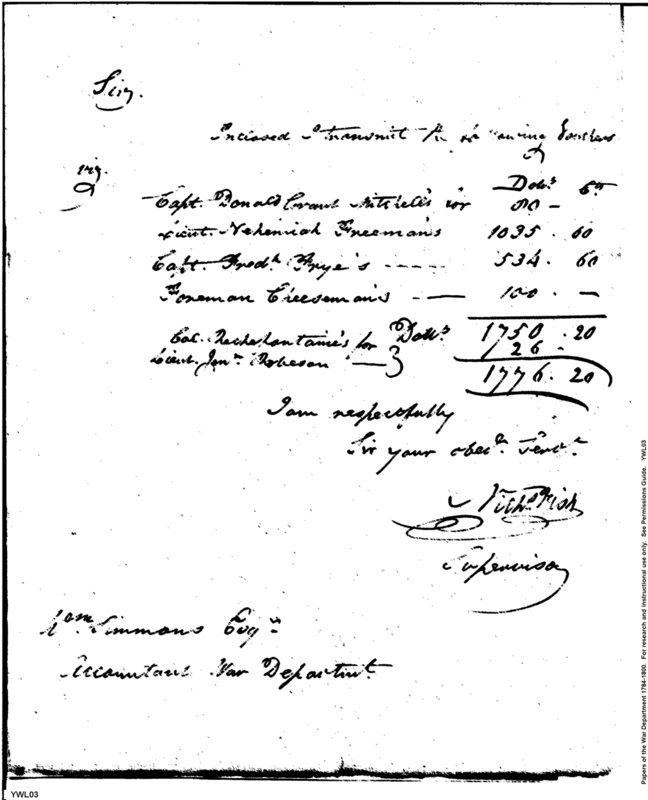 Sir,
Inclosed I transmit the following Vouchers
viz.
Dolrs. Cts
Capt. Donald Grant Mitchell's for 80 —
Lieut. Nehemiah Freeman's 1035 . 60
Capt. Fredk. Frye's ---- 534 . 60
Foreman Cheeseman's — 100 . —
1750 . 20
Col. Rochefontaine's for Dolls.
Lieut. Jonn. Robeson — } 26 -
1776 . 20
I am respectfully
Sir your obedt. Servt.
Nichs Fish
Supervisor
Wm Simmons Esqr
Accountant War Departmt.
YWL03
Papers of the War Department 1784-1800. For research and instructional use only. See Permissions Guide. YWL03